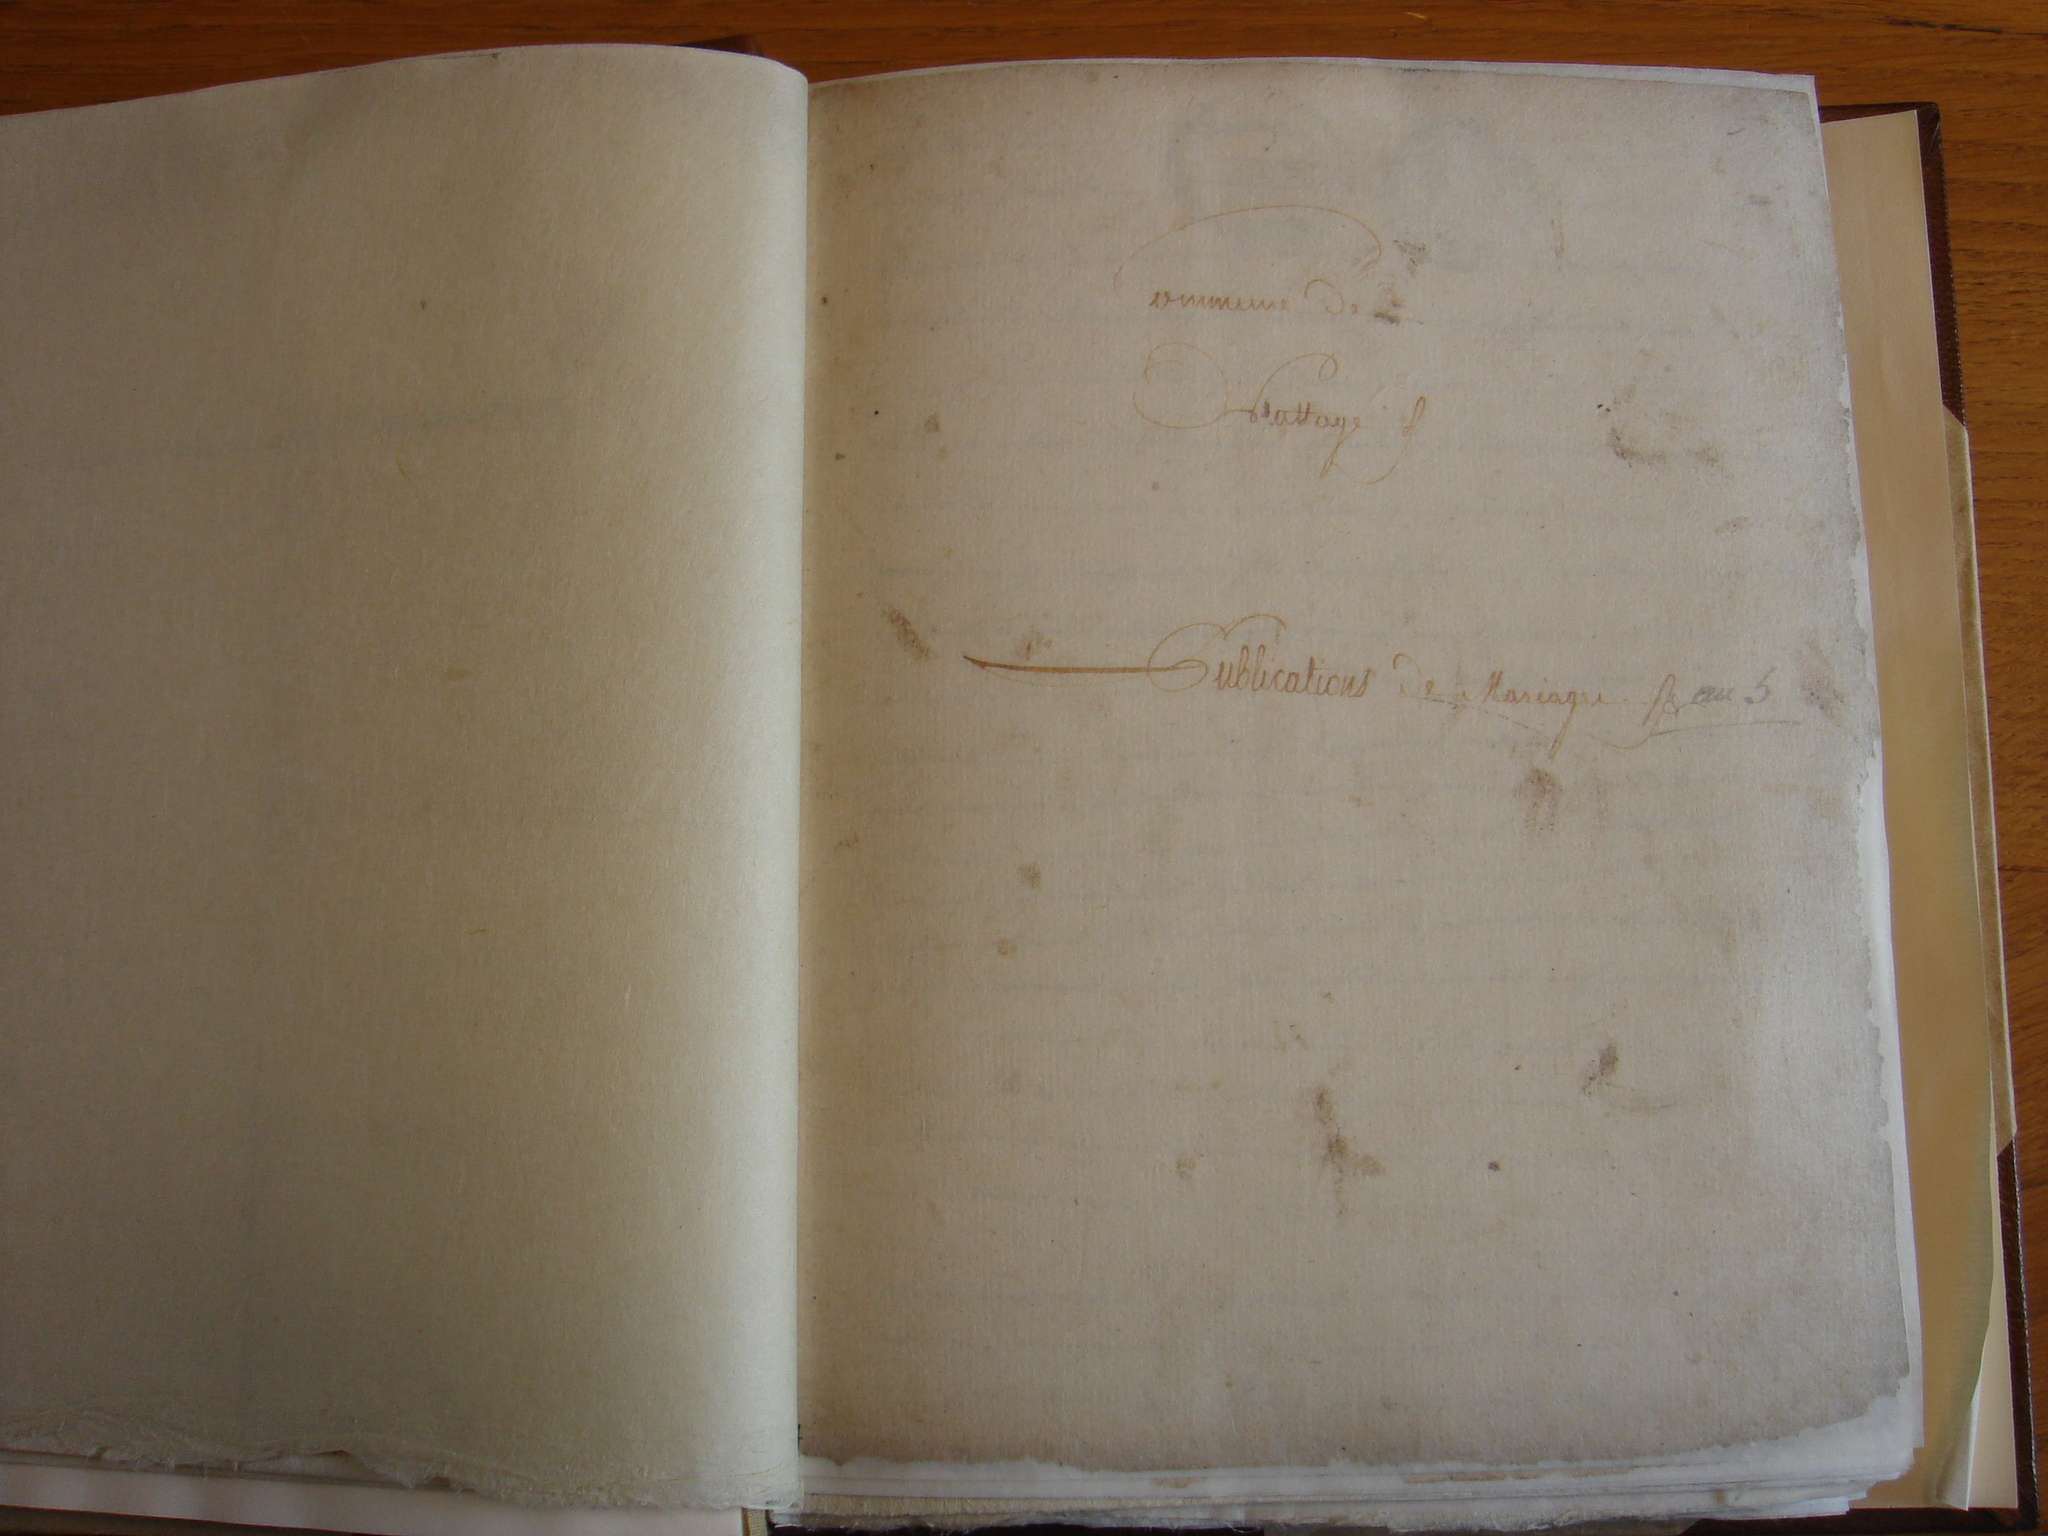 Commune de
Publications de Mariage an 5